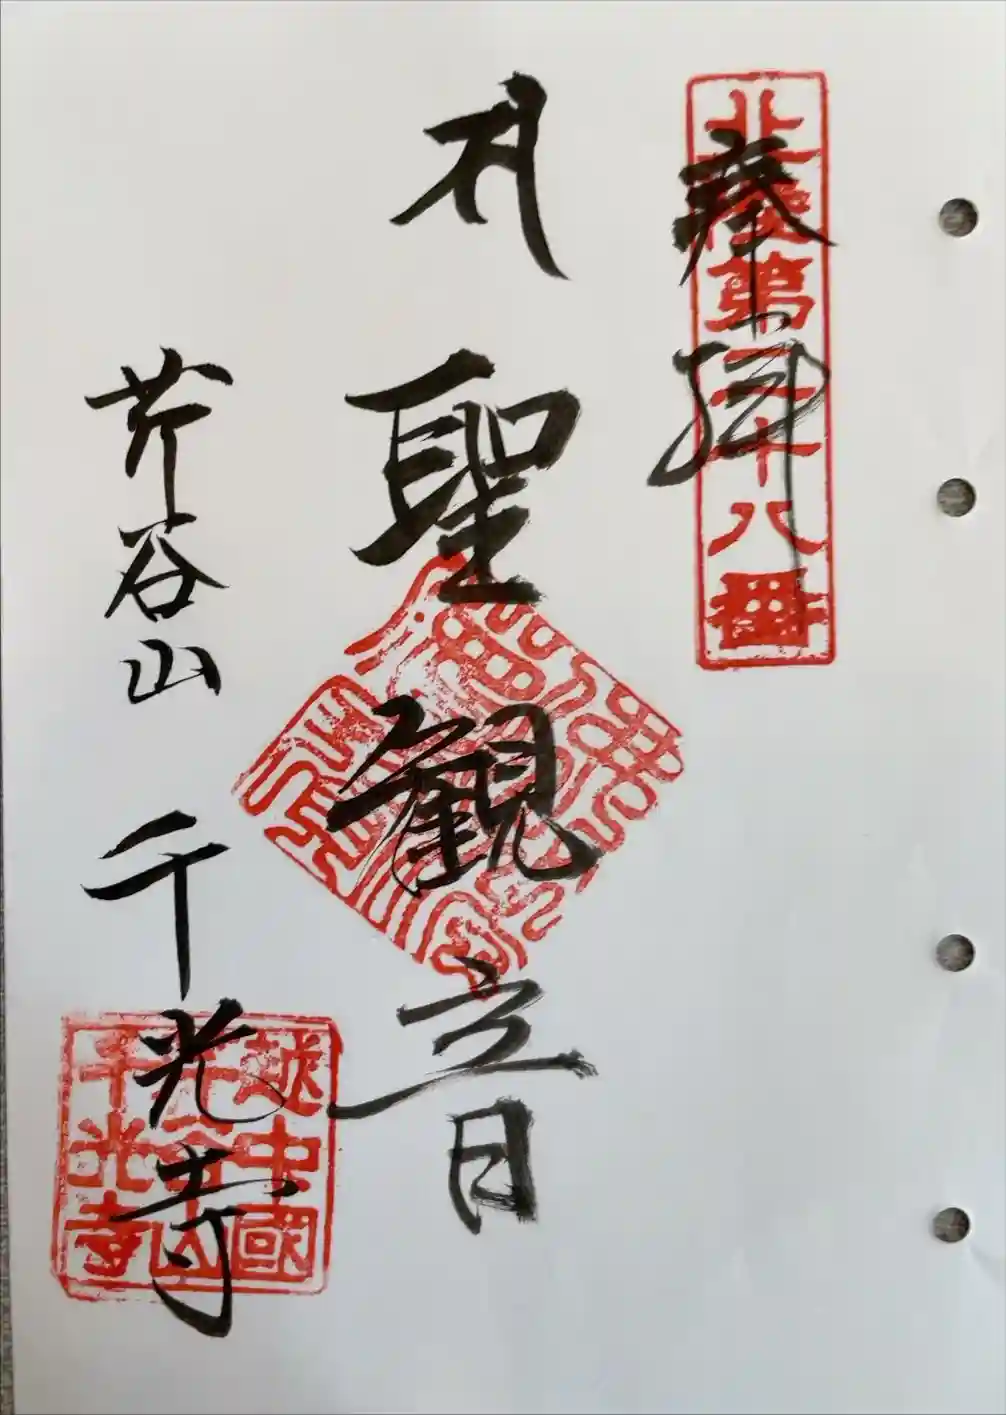 北陸第三十八番
奉拝
サ 聖観音
芹谷山 千光寺
越中國
芹谷山
千光寺